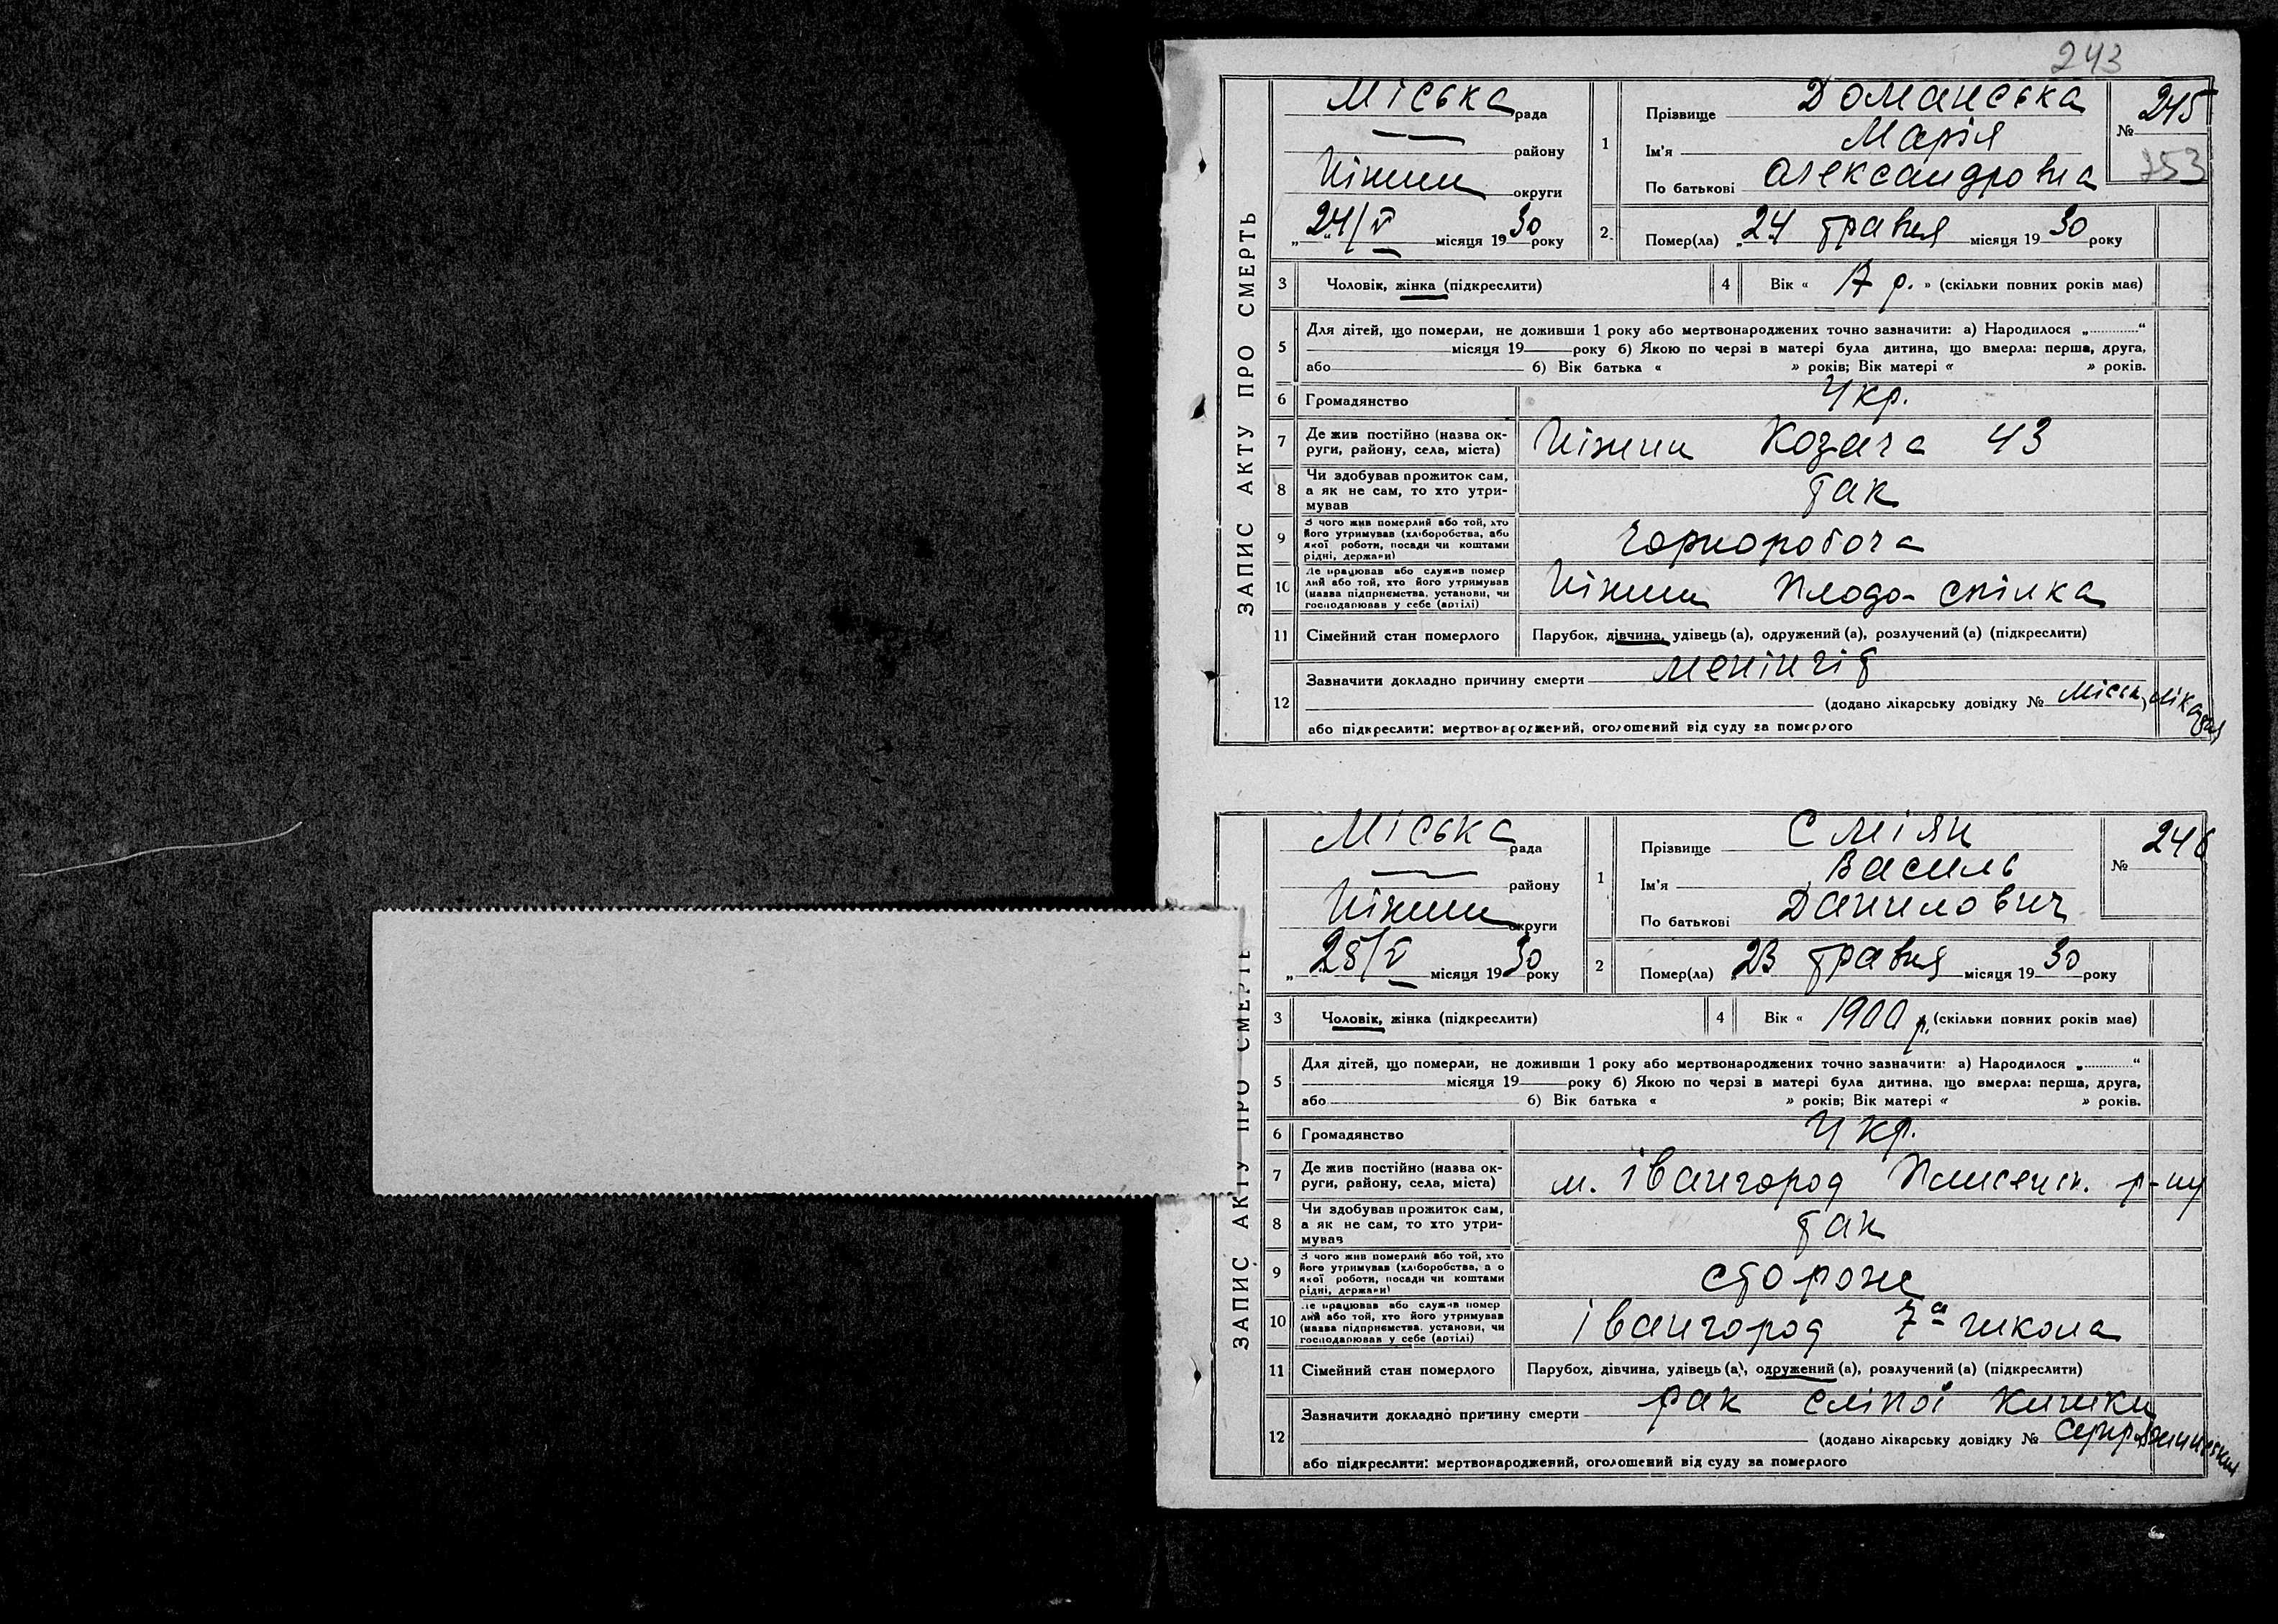 243
ЗАПИС АКТУ ПРО СМЕРТЬ
Міська рада
району
Ніжин округи
„24/V місяця 1930 року
1
Прізвище Доманська
Ім'я Марія
По батькові Олександровна
№ 245
353
2. Помер(ла) „24 травня місяця 1930 року
3 Чоловік, жінка (підкреслити)
4 Вік « 17 р. » (скільки повних років має)
5 Для дітей, що померли, не доживши 1 року або мертвонароджених точно зазначити: а) Народилося „............“
місяця 19 року б) Якою по черзі в матері була дитина, що вмерла: перша, друга,
або б) Вік батька « » років; Вік матері « » років.
6 Громадянство Укр.
7 Де жив постійно (назва ок-
руги, району, села, міста) Ніжин Козача 43
8 Чи здобував прожиток сам,
а як не сам, то хто утри-
мував так
9 З чого жив померлий або той, хто
його утримував (хліборобства, або
якої роботи, посади чи коштами
рідні, держави) Чорноробоча
10 Де працював або служив помер
лий або той, хто його утримував
(назва підприємства, установи, чи
господарював у себе (артілі) Ніжин Плодо-спілка
11 Сімейний стан померлого Парубок, дівчина, удівець (а), одружений (а), розлучений (а) (підкреслити)
12 Зазначити докладно причину смерти менінгіт
(додано лікарську довідку №
або підкреслити: мертвонароджений, оголошений від суду за померлого
ЗАПИС АКТУ ПРО СМЕРТЬ
Міська рада
району
Ніжин округи
„28/V місяця 1930 року
1
Прізвище Сміян
Ім'я Василь
По батькові Данилович
№ 246
2 Помер(ла) „23 травня місяця 1930 року
3 Чоловік, жінка (підкреслити)
4 Вік « 1900 р. (скільки повних років має)
5 Для дітей, що померли, не доживши 1 року або мертвонароджених точно зазначити: а) Народилося „............“
місяця 19 року б) Якою по черзі в матері була дитина, що вмерла: перша, друга,
або б) Вік батька « » років; Вік матері « » років.
6 Громадянство Укр.
7 Де жив постійно (назва ок-
руги, району, села, міста) м. Івангород р-ну
8 Чи здобував прожиток сам,
а як не сам, то хто утри-
мував так
9 З чого жив померлий або той, хто
його утримував (хліборобства, а о
якої роботи, посади чи коштами
рідні, держави) сторож
10 Де працював або служив помер
лий або той, хто його утримував
(назва підприємства, установи, чи
господарював у себе (артілі) Івангород 7а школа
11 Сімейний стан померлого Парубок, дівчина, удівець (а), одружений (а), розлучений (а) (підкреслити)
12 Зазначити докладно причину смерти рак сліпої кишки
(додано лікарську довідку №
або підкреслити: мертвонароджений, оголошений від суду за померлого